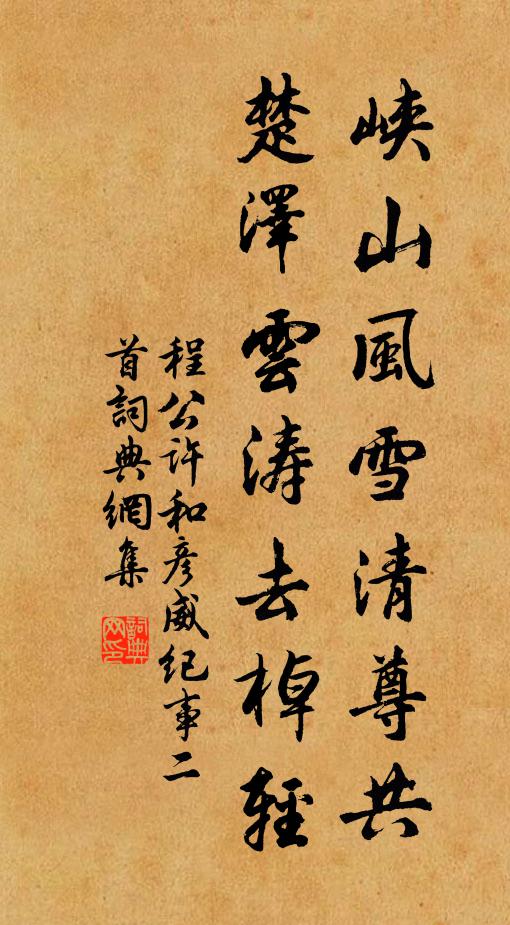 峽山風雪清尊共
楚澤雲濤去棹輕
程公許和彥威紀事二
首詞典網集
詞典網印